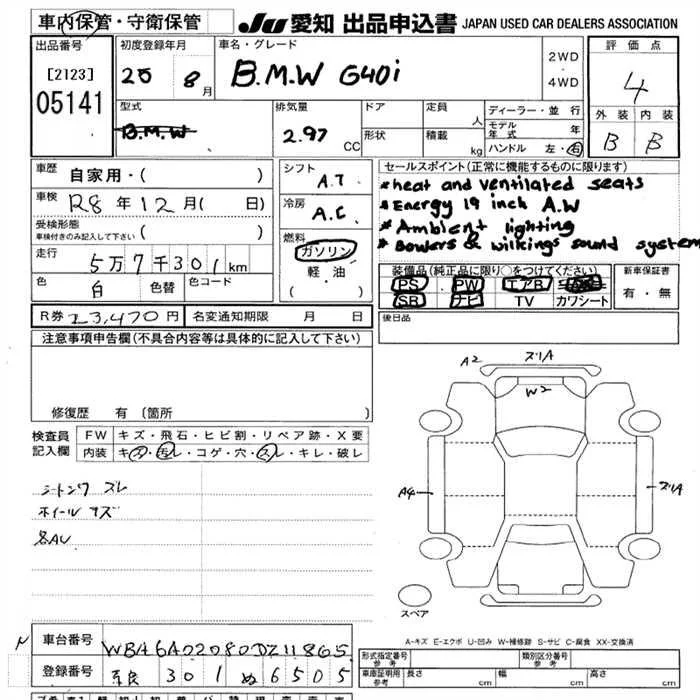 車内保管・守衛保管
JU 愛知 出品申込書 JAPAN USED CAR DEALERS ASSOCIATION
出品番号
[2123]
05141
初度登録年月
25 8月
車名・グレード
B.M.W 640i
2WD
・
4WD
評価点
4
外装 内装
B B
型式
B.M.W
排気量
2.97 CC
ドア
形状
定員 人
積載 kg
ディーラー・並行
モデル年式 年
ハンドル 左・右
車歴 自家用・( )
車検 R8年12月( 日)
受検形態
車検付きのみ記入して下さい ( )
走行 5万7千301km
色 白 色替 色コード
シフト
A.T
冷房
A.C
燃料
ガソリン
軽・油
( )
セールスポイント(正常に機能するものに限ります)
*heat and ventilated seats
*Energy 19 inch A.W
*Ambient lighting
*Bowers & wilkings sound system
装備品(純正品に限り○をつけてください)
PS PW エアB
SR ナビ TV カワシート
新車保証書
有・無
R券 23,470円 名変通知期限 月 日
後日品
注意事項申告欄(不具合内容等は具体的に記入して下さい)
修復歴 有 [箇所 ]
検査員記入欄
FW キズ・飛石・ヒビ割・リペア跡・X要
内装 キズ・汚レ・コゲ・穴・スレ・キレ・破レ
シートシワ スレ
ホイール キズ
各AU
A2 ズリA
W2
A4 ズリA
スペア
A-キズ E-エクボ U-凹み W-補修跡 S-サビ C-腐食 XX-交換済
N 車台番号 WBA6A02080DZ11865
登録番号 奈良 301 ぬ 6505
形式指定番号 参考
類別区分番号 参考
車庫証明用 参考 長さ cm 幅 cm 高さ cm